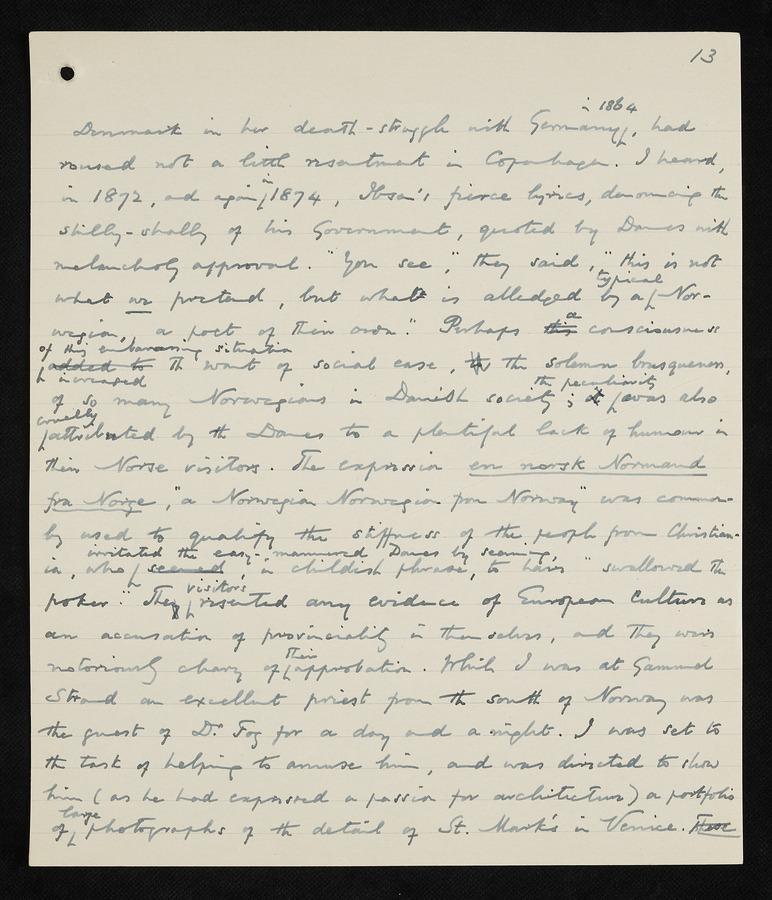 13
in 1864
Denmark in her death-struggle with Germany, had
roused not a little resentment in Copenhagen. I heard,
in 1872, and again in 1874, Ibsen's fierce lyrics, denouncing the
shilly-shally of his Government, quoted by Danes with
melancholy approval. "You see," they said, "this is not
typical
what we pretend, but what is alleged by a Nor-
a
wegian, a poet of their own." Perhaps this consciousness
of this embarrassing situation
added to the want of social ease, the solemn brusqueness,
increased
the peculiarity
of so many Norwegians in Danish society; it was also
cruelly
attributed by the Danes to a plentiful lack of humour in
their Norse visitors. The expression en norsk Normand
fra Norge, "a Norwegian Norwegian from Norway" was common-
ly used to qualify the stiffness of the people from Christian-
irritated the easy-mannered Danes by seeming,
ia, who seemed, in childish phrase, to have "swallowed the
visitors
poker." They resented any evidence of European culture as
an accusation of provinciality in themselves, and they were
their
notoriously chary of approbation. While I was at Gammel
Strand an excellent priest from the south of Norway was
the guest of Dr. Fog for a day and a night. I was set to
the task of helping to amuse him, and was directed to show
him (as he had expressed a passion for architecture) a portfolio
large
of photographs of the detail of St. Mark's in Venice. These